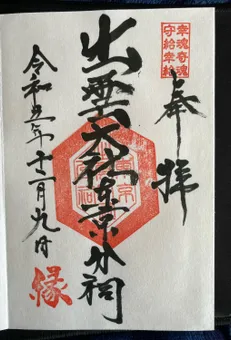 幸魂奇魂
守給幸給
奉拝
出雲大社東京分祠
令和五年十二月九日
縁